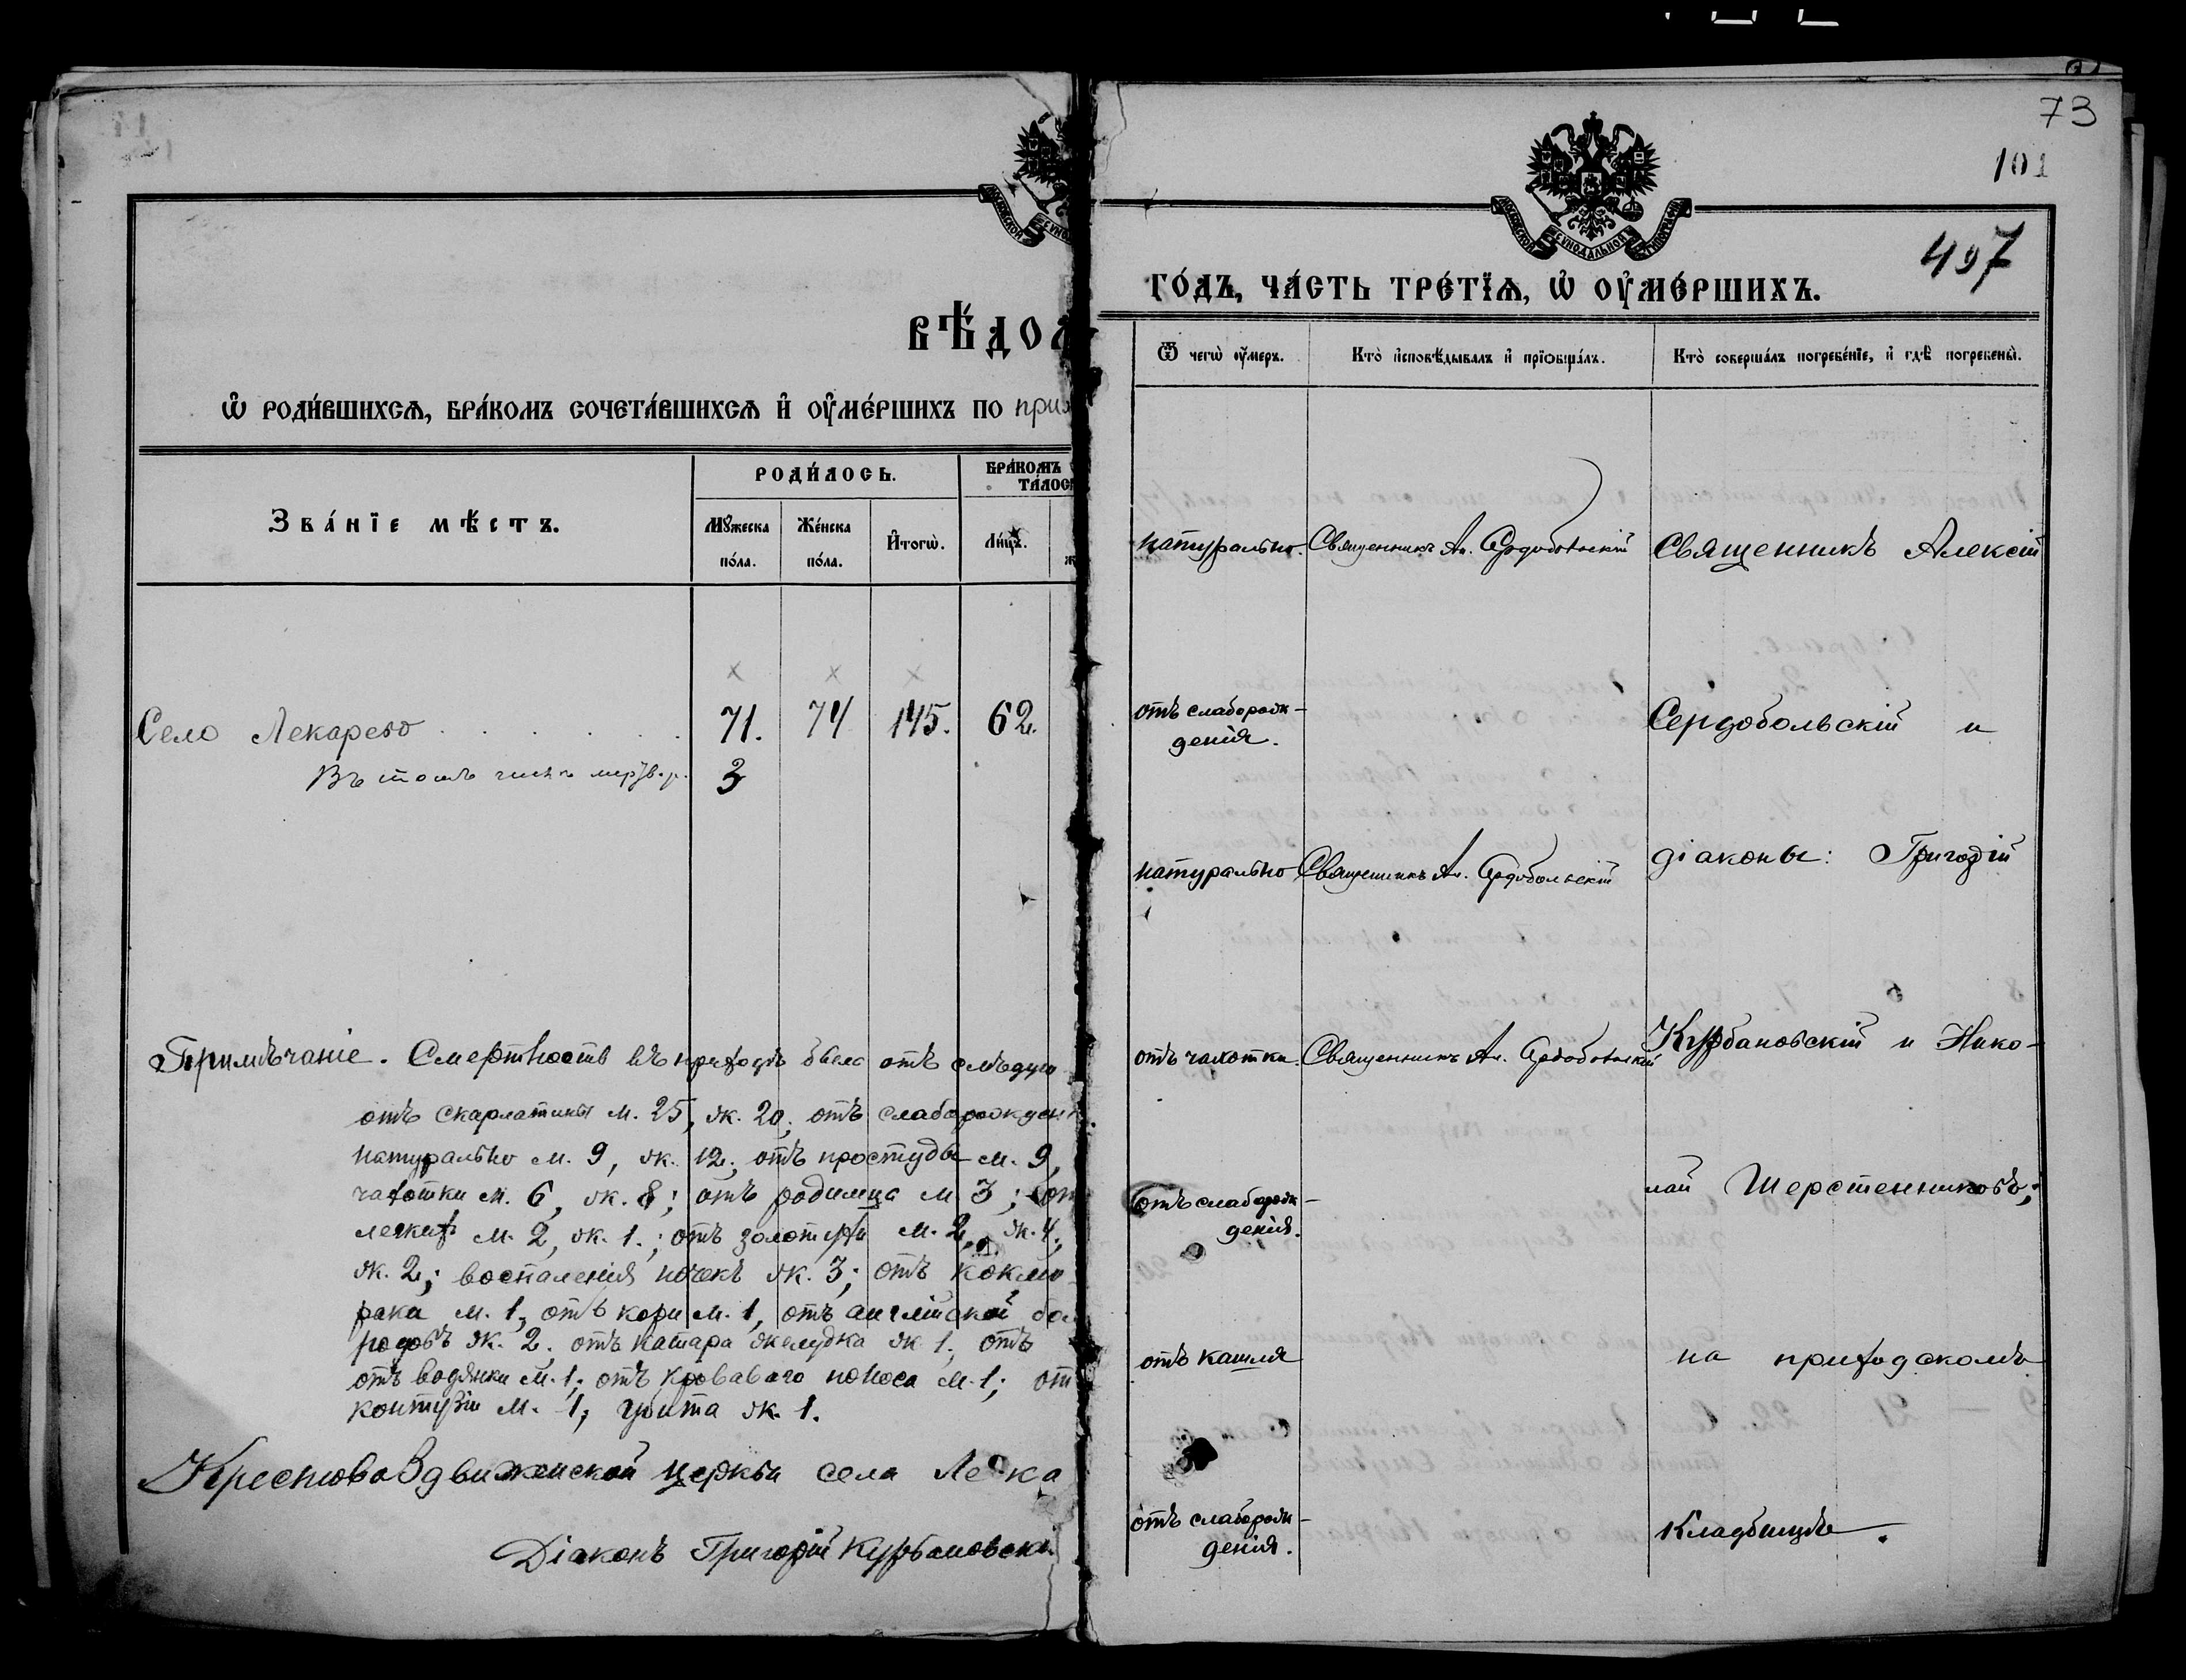 ВѢДО
Ѡ҆ РОДИ́ВШИХСѦ, БРА́КОМЪ СОЧЕТА́ВШИХСѦ И҆ ОУ҆МЕ́РШИХЪ ПО при
Зва́нїе мѣстъ.
РОДИ́ЛОСЬ.
БРА́КОМЪ
ТА́ЛОС
Мꙋжеска по́ла.
Же́нска по́ла.
И҆тогѡ̀.
Ли́цъ.
Село Лекарево 71. 74 145. 62.
Въ томъ числѣ мертв. р. 3
Примѣчаніе. Смертность въ приходѣ была отъ слѣдую
отъ скарлатины м. 25, ж. 20; отъ слаборожден
натурально м. 9, ж. 12; отъ простуды м. 9,
чахотки м. 6, ж. 8; отъ родимца м. 3; от
легких м. 2, ж. 1.; отъ золотухи м. 2, ж. 4;
ж. 2; воспаленія почекъ ж. 3; отъ коклю
рака м. 1, отъ кори м. 1, отъ англійской бо
родовъ ж. 2. отъ катара желудка ж 1; отъ
отъ водянки м. 1; отъ кроваваго поноса м. 1; от
контузіи м. 1; ж. 1.
Крестовоздвиженской церкви села Лека
Діаконъ Григорій Курбановскі
73
101
497
ГО́ДЪ, ЧА́СТЬ ТРЕ́ТЇѦ, Ѡ҆ ОУ҆МЕ́РШИХЪ.
Ѿ чегѡ̀ оу҆́меръ.
Кто̀ и҆сповѣ́дывалъ и҆ прїѡбща́лъ.
Кто̀ соверша́лъ погребе́нїе, и҆ гдѣ̀ погребены̀.
натурально. Священникъ Ал. Сердобольскій Священникъ Алексій
отъ слаборож-
денія. Сердобольскій и
натурально Священникъ Ал. Сердобольскій діаконы: Григорій
отъ чахотки. Священникъ Ал. Сердобольскій Курбановскій и Нико-
отъ слаборож-
денія. лай Шерстенниковъ;
отъ кашля на приходскомъ
отъ слаборож-
денія. кладбищѣ.